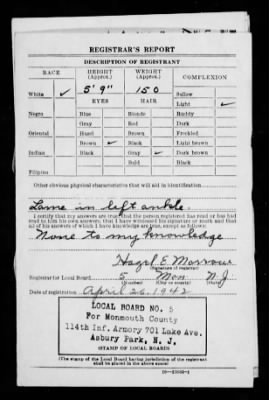 REGISTRAR'S REPORT
DESCRIPTION OF REGISTRANT
RACE HEIGHT (Approx.) WEIGHT (Approx.) COMPLEXION
White ✓ 5' 9" 150 Sallow
EYES HAIR Light ✓
Negro Blue Blonde Ruddy
Gray Red Dark
Oriental Hazel Brown Freckled
Brown ✓ Black Light brown
Indian Black Gray ✓ Dark brown
Bald Black
Filipino
Other obvious physical characteristics that will aid in identification
Lame in left ankle.
I certify that my answers are true; that the person registered has read or has had
read to him his own answers; that I have witnessed his signature or mark and that
all of his answers of which I have knowledge are true, except as follows:
None to my knowledge
Hazel E. Morrow
(Signature of registrar)
Registrar for Local Board 5 Mon N.J.
(Number) (City or county) (State)
Date of registration April 26, 1942
LOCAL BOARD NO. 5
For Monmouth County
114th Inf. Armory 701 Lake Ave.
Asbury Park, N. J.
(STAMP OF LOCAL BOARD)
(The stamp of the Local Board having jurisdiction of the registrant
shall be placed in the above space)